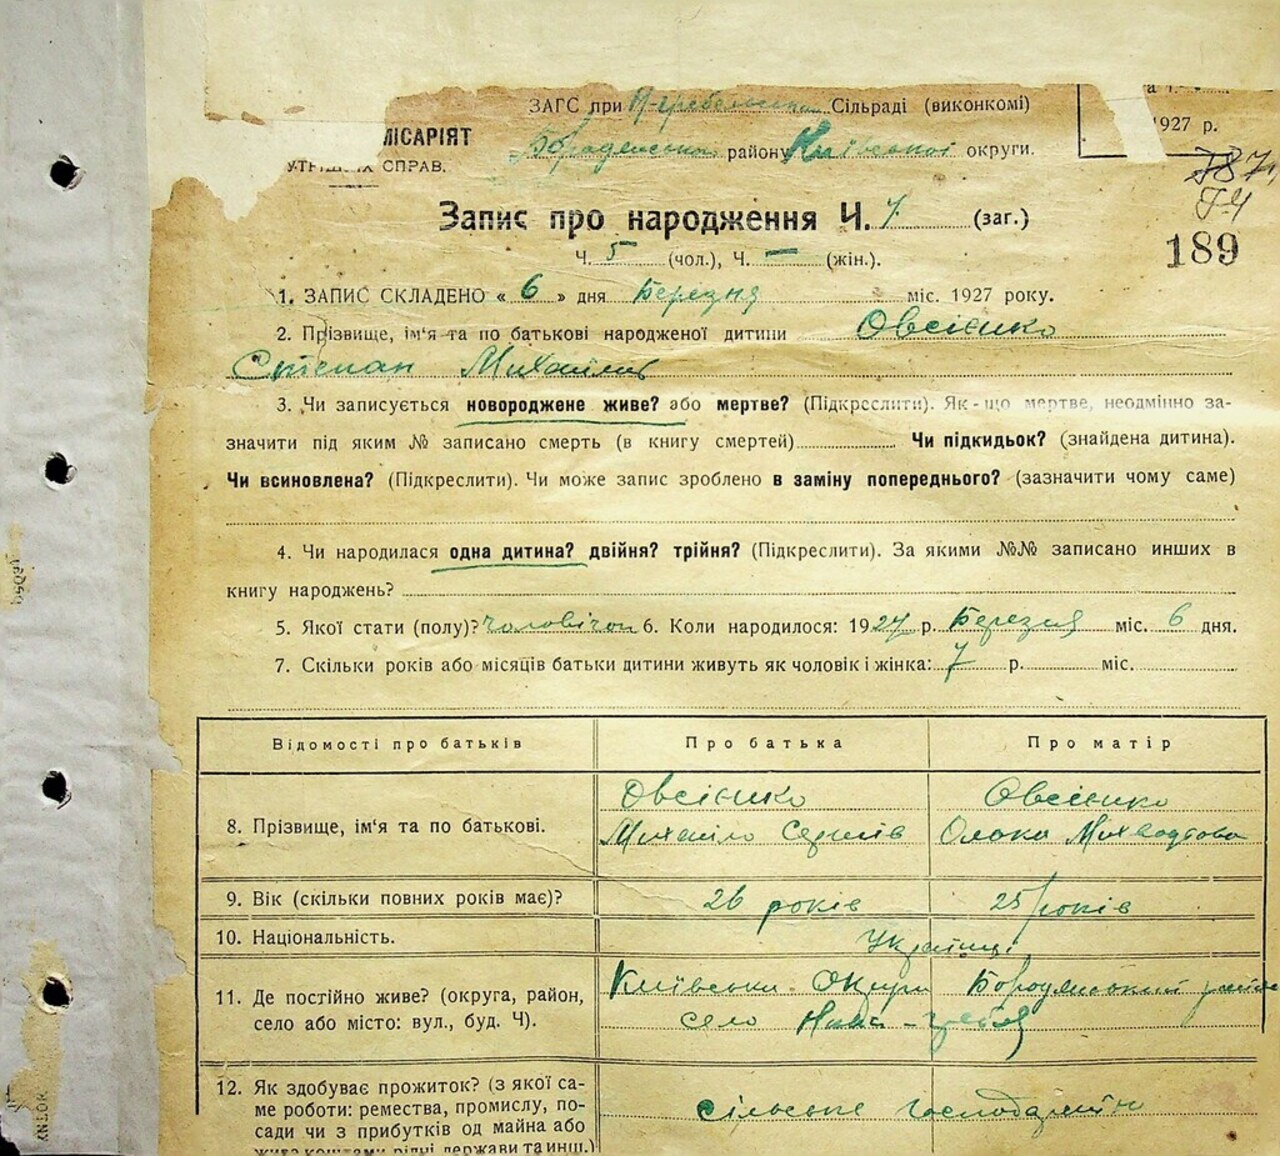 ЗАГС при Н-гребельська Сільраді (виконкомі)
ІСАРІЯТ
1927 р.
Бородянська району Київської округи.
СПРАВ.
787
Запис про народження Ч. 7 (заг.)
189
Ч. 5 (чол.), Ч. — (жін.).
1. ЗАПИС СКЛАДЕНО « 6 » дня Березня міс. 1927 року.
2. Прізвище, ім'я та по батькові народженої дитини Овсієнко
Степан Михайлів
3. Чи записується новороджене живе? або мертве? (Підкреслити). Як-що мертве, неодмінно за-
значити під яким № записано смерть (в книгу смертей) Чи підкидьок? (знайдена дитина).
Чи всиновлена? (Підкреслити). Чи може запис зроблено в заміну попереднього? (зазначити чому саме)
4. Чи народилася одна дитина? двійня? трійня? (Підкреслити). За якими №№ записано инших в
книгу народжень?
5. Якої стати (полу)? чоловічої 6. Коли народилося: 1927 р. Березня міс. 6 дня.
7. Скільки років або місяців батьки дитини живуть як чоловік і жінка: 7 р. міс.
Відомості про батьків Про батька Про матір
Овсієнко Овсієнко
8. Прізвище, ім'я та по батькові. Михайло Сергіїв
9. Вік (скільки повних років має)? 26 років 25 років
10. Національність. Українці
11. Де постійно живе? (округа, район, Київська Округи Бородянський район
село або місто: вул., буд. Ч). село Нова-гребля
12. Як здобуває прожиток? (з якої са-
ме роботи: ремества, промислу, по- сільське господарство
сади чи з прибутків од майна або
чужа коштами рідні держави та инш.)